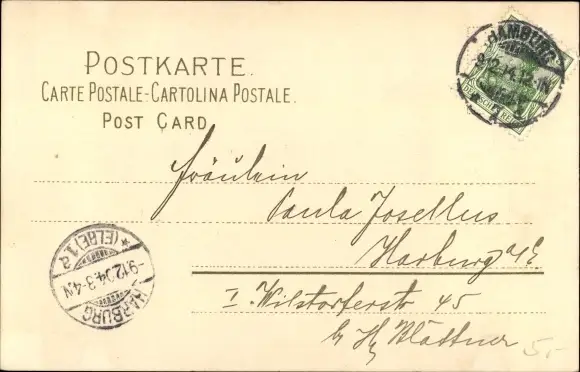 POSTKARTE.
CARTE POSTALE-CARTOLINA POSTALE.
POST CARD
HAMBURG
Fräulein
Paula Josellus
Harburg a/E
I. Wilstorferstr 45
b/ H. Blättner
HARBURG
(ELBE) 1.
9.12.04.3-4.N
5,-